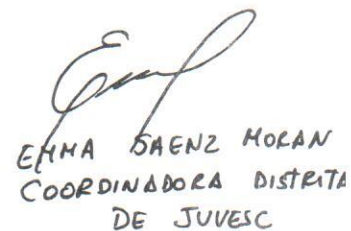 EMMA SAENZ MORAN
COORDINADORA DISTRITA
DE JUVESC